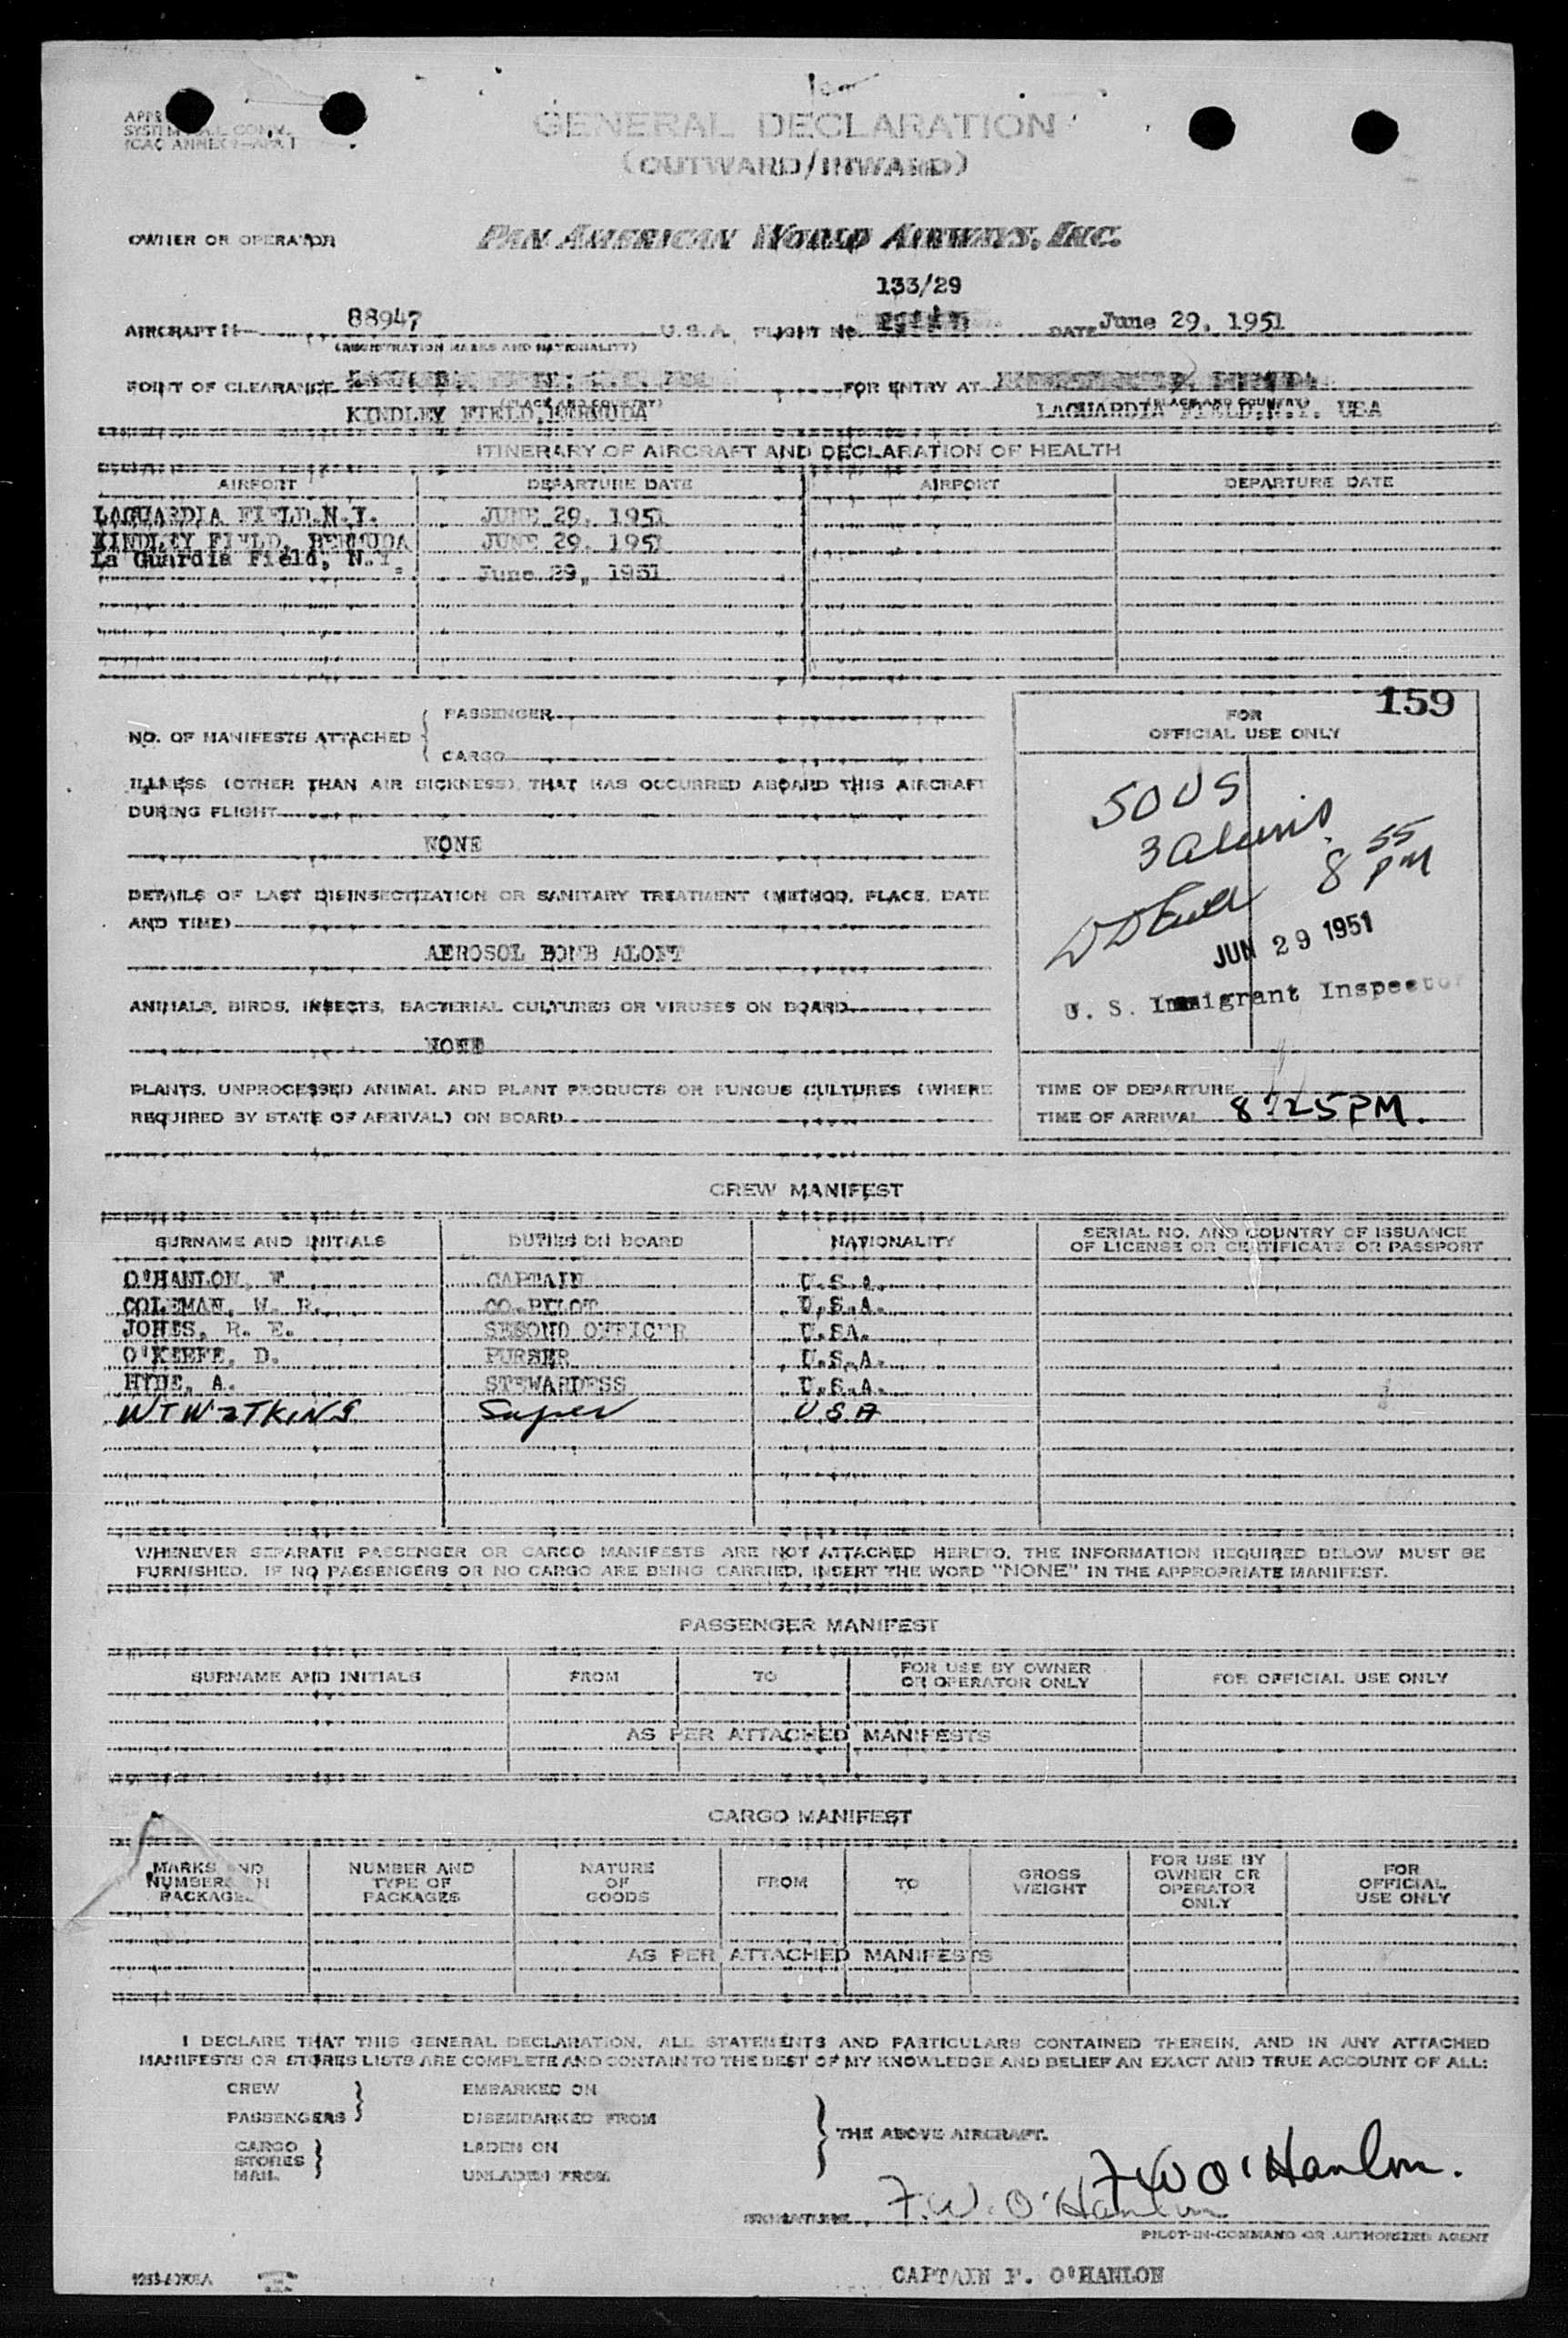 GENERAL DECLARATION
(OUTWARD/INWARD)
OWNER OR OPERATOR PAN AMERICAN WORLD AIRWAYS, INC.
133/29
AIRCRAFT N 88947 U.S.A. FLIGHT NO. DATE June 29, 1951
(REGISTRATION MARKS AND NATIONALITY)
POINT OF CLEARANCE FOR ENTRY AT
(PLACE AND COUNTRY) (PLACE AND COUNTRY)
KINDLEY FIELD, BERMUDA LAGUARDIA FIELD, N.Y. USA
ITINERARY OF AIRCRAFT AND DECLARATION OF HEALTH
AIRPORT DEPARTURE DATE AIRPORT DEPARTURE DATE
LAGUARDIA FIELD.N.Y. JUNE 29, 1951
KINDLEY FIELD, BERMUDA JUNE 29, 1951
La Guardia Field, N.Y. June 29, 1951
159
NO. OF MANIFESTS ATTACHED { PASSENGER
CARGO
FOR
OFFICIAL USE ONLY
ILLNESS (OTHER THAN AIR SICKNESS) THAT HAS OCCURRED ABOARD THIS AIRCRAFT
DURING FLIGHT
NONE
50 US
3 aliens
8 55 PM
JUN 29 1951
U. S. Immigrant Inspector
DETAILS OF LAST DISINSECTIZATION OR SANITARY TREATMENT (METHOD, PLACE, DATE
AND TIME)
AEROSOL BOMB ALOFT
ANIMALS, BIRDS, INSECTS, BACTERIAL CULTURES OR VIRUSES ON BOARD
NONE
PLANTS, UNPROCESSED ANIMAL AND PLANT PRODUCTS OR FUNGUS CULTURES (WHERE
REQUIRED BY STATE OF ARRIVAL) ON BOARD
TIME OF DEPARTURE
TIME OF ARRIVAL 8:25 PM.
CREW MANIFEST
SURNAME AND INITIALS DUTIES ON BOARD NATIONALITY SERIAL NO. AND COUNTRY OF ISSUANCE
OF LICENSE OR CERTIFICATE OR PASSPORT
O'HANLON, F. CAPTAIN U.S.A.
COLEMAN, W. R. CO-PILOT U.S.A.
JONES, R. E. SESOND OFFICER U.SA.
O'KEEFE, D. PURSER U.S.A.
HYDE, A. STEWARDESS U.S.A.
W T WATKINS Super USA
WHENEVER SEPARATE PASSENGER OR CARGO MANIFESTS ARE NOT ATTACHED HERETO, THE INFORMATION REQUIRED BELOW MUST BE
FURNISHED. IF NO PASSENGERS OR NO CARGO ARE BEING CARRIED, INSERT THE WORD "NONE" IN THE APPROPRIATE MANIFEST.
PASSENGER MANIFEST
SURNAME AND INITIALS FROM TO FOR USE BY OWNER
OR OPERATOR ONLY FOR OFFICIAL USE ONLY
AS PER ATTACHED MANIFESTS
CARGO MANIFEST
MARKS AND
NUMBERS ON
PACKAGES
NUMBER AND
TYPE OF
PACKAGES
NATURE
OF
GOODS
FROM
TO
GROSS
WEIGHT
FOR USE BY
OWNER OR
OPERATOR
ONLY
FOR
OFFICIAL
USE ONLY
AS PER ATTACHED MANIFESTS
I DECLARE THAT THIS GENERAL DECLARATION, ALL STATEMENTS AND PARTICULARS CONTAINED THEREIN, AND IN ANY ATTACHED
MANIFESTS OR STORES LISTS ARE COMPLETE AND CONTAIN TO THE BEST OF MY KNOWLEDGE AND BELIEF AN EXACT AND TRUE ACCOUNT OF ALL:
CREW } EMBARKED ON
PASSENGERS DISEMBARKED FROM
CARGO
STORES } LADEN ON
MAIL UNLADEN FROM
} THE ABOVE AIRCRAFT.
F W O'Hanlon.
SIGNATURE F. W. O'Hanlon
PILOT-IN-COMMAND OR AUTHORIZED AGENT
CAPTAIN F. O'HANLON